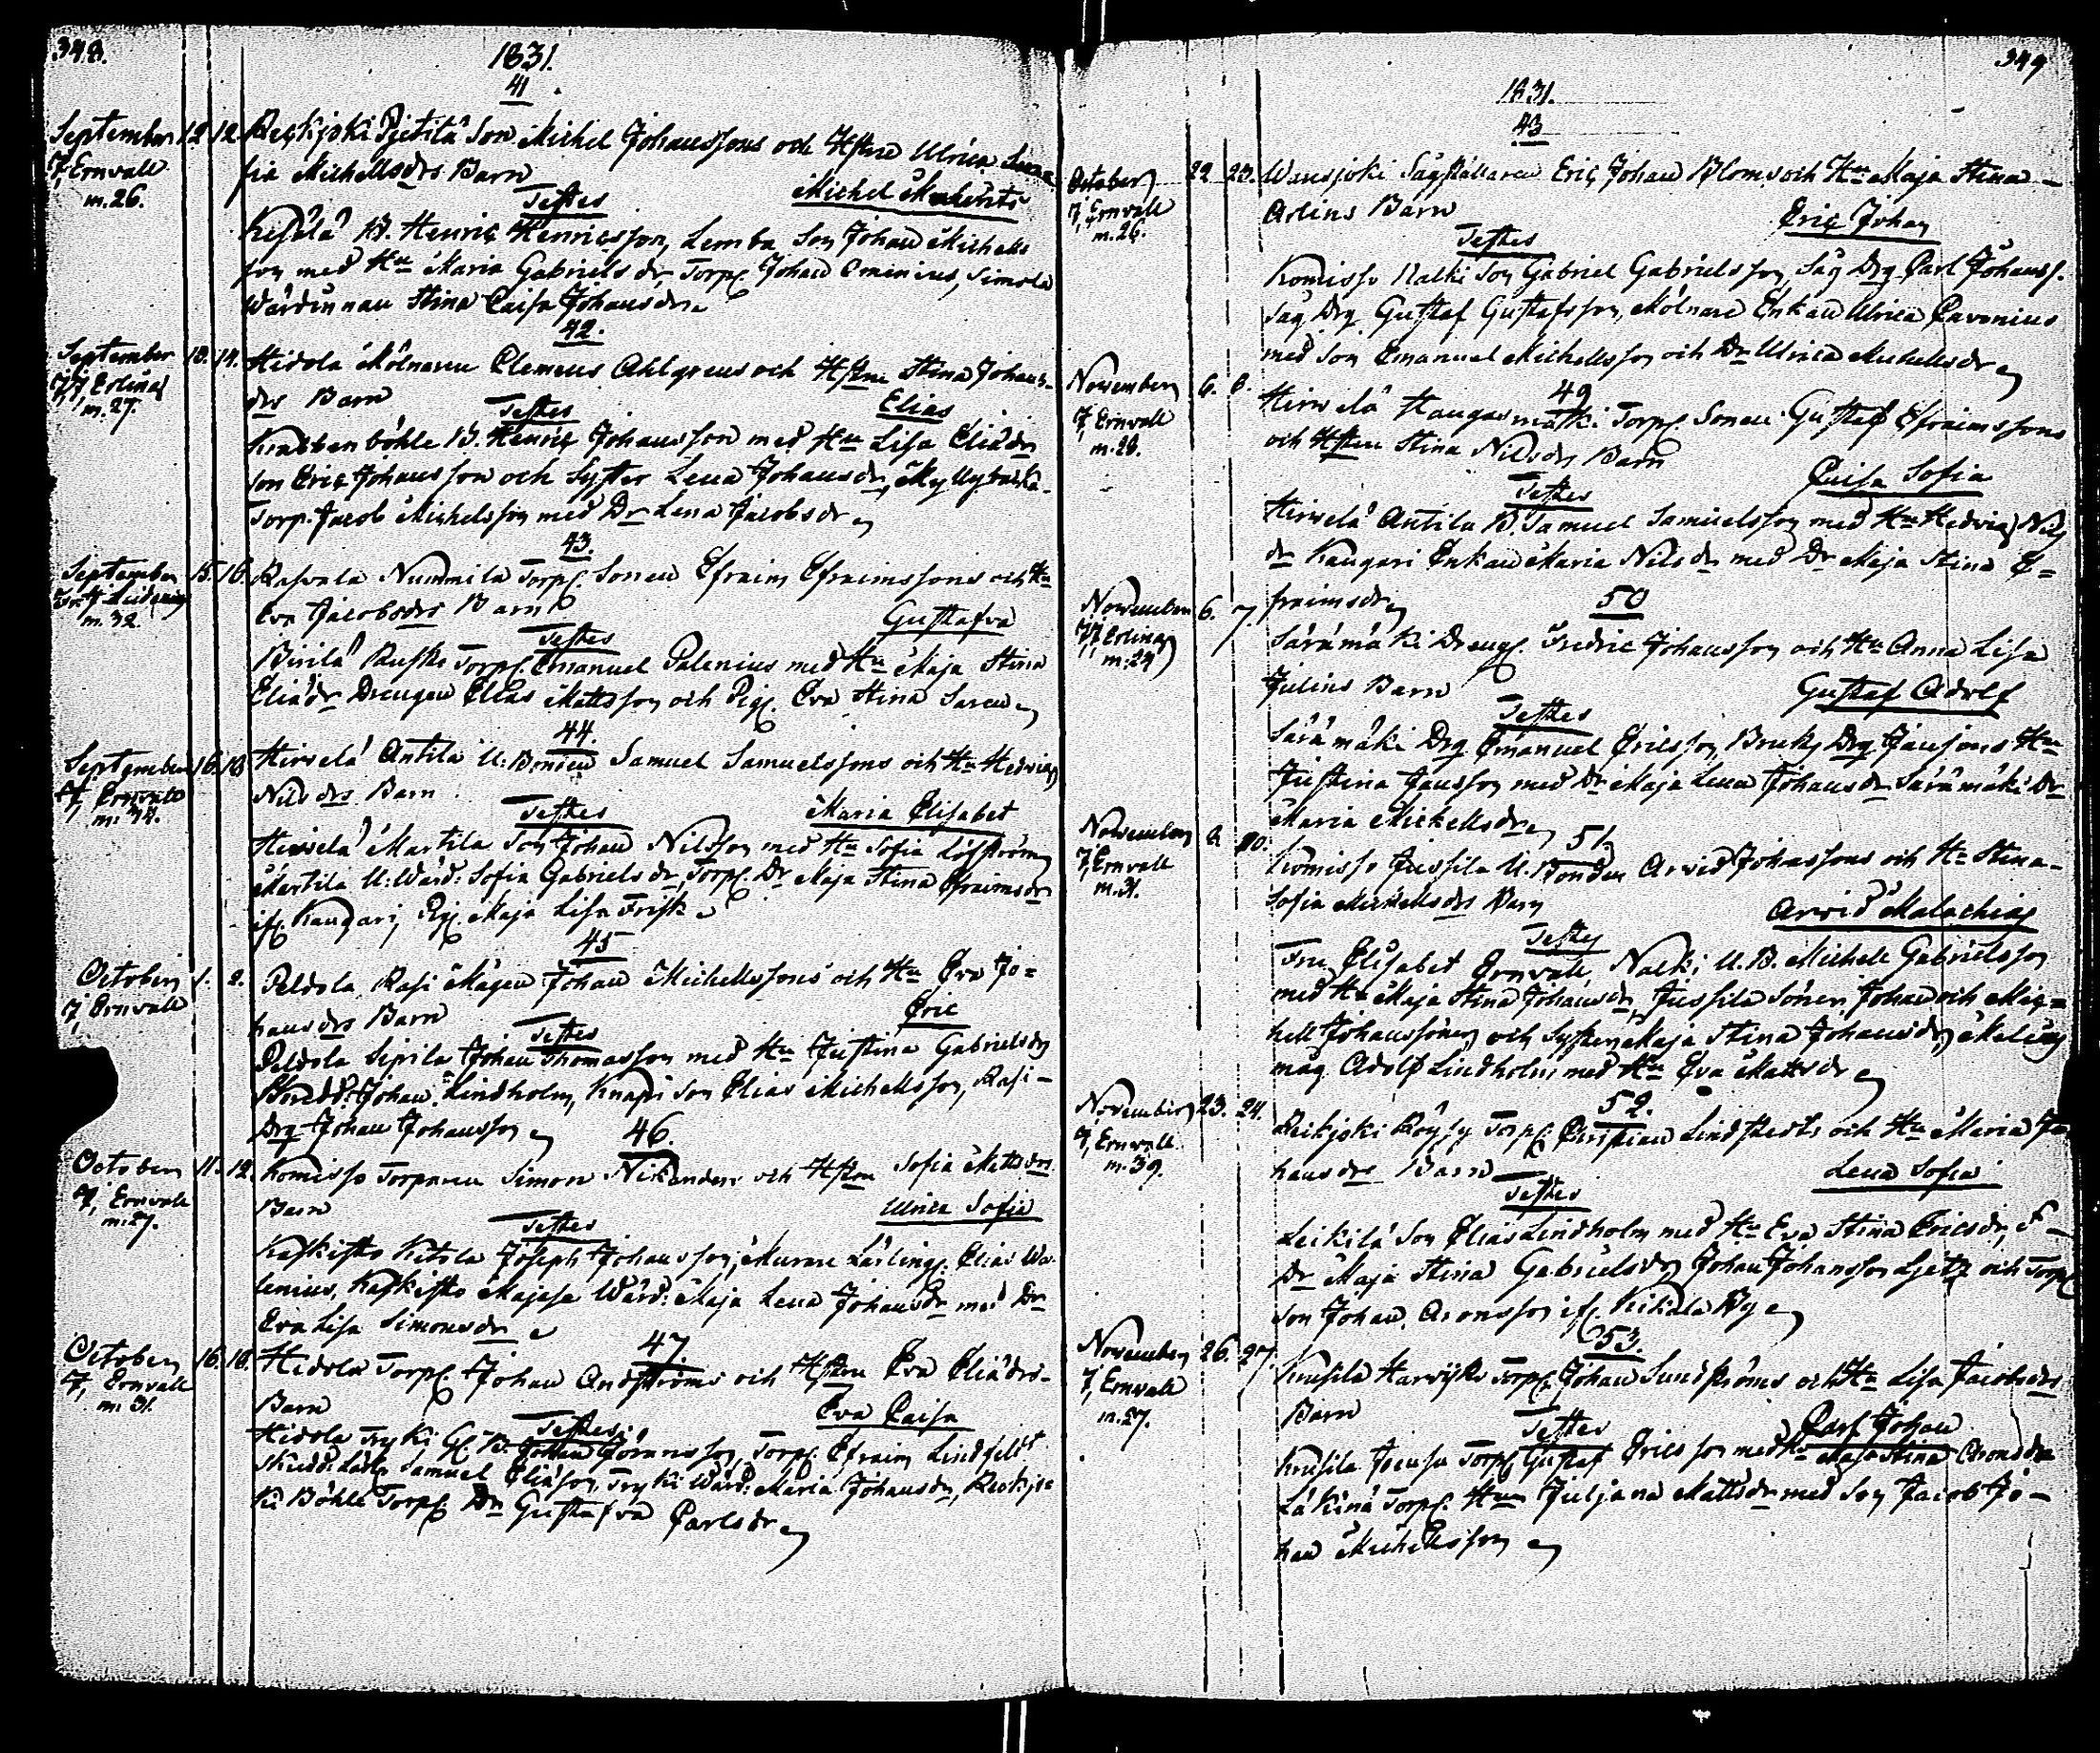 348.
1831.
41
September 12 12. Reckjoki Pjetilä Son Michel Johanssons och Hstru Ulrica
J, Ernvall
m. 26.
fia Michellsdrs Barn
Testes
Michel
Kesälä B. Henric Henricsson, Lemba Son Johan Michels
son med Hu Maria Gabriels dr, Torp. Johan Ominius, Simola
Wärdinnan Stina Caisa Johansdr
42.
September 13. 14. Hidola Mölnaren Clemens Ahlgrens och Hstru Stina Johans-
m. 27.
drs Barn
Testes
Elias
Krabbenböhle B. Henric Johansson med Hu Lisa Eliædr
Son Eric Johansson och Syster Lena Johansdr, Myllyturka-
Torp. Jacob Michelsson med Dr Lena Jacobsdr
43.
September 15. 16. Rasvala Nummila Torp. Sonen Efraim Efraimssons och Hu
m. 32.
Eva Jacobsdrs Barn
Testes
Gustafva
Birilä Rusko Torp. Emanuel Palenius med Hu Maja Stina
Eliædr Drengen Elias Mattsson och Pig. Eva Stina Saren
44.
September 16. 18. Hirvelä Antila U. Bonden Samuel Samuelssons och Hu Hedvig
J, Ernvall
m. 32.
Nils drs Barn
Testes
Maria Elisabet
Hirvelä Martila Son Johan Nilsson med Hu Sofia Löfström
Martila U. Wärd: Sofia Gabriels dr, Torp. Dr Maja Stina Efraimsdr
if. Kaugari, Pig. Maja Lisa Frisk
45
October 1. 2. Peldola Rasi Mågen Johan Michellssons och Hu Eva Jo=
J, Ernvall
hans drs Barn
Testes
Eric
Peldola Sipilä Johan Thomasson med Hu Justina Gabrielsdr
Johan Lindholm, Knapi Son Elias Michellsson, Rasi-
Drg Johan Johansson
46.
October 11. 12. Komisso Torparen Simon Nikanders och Hstru Sofia Mattsdrs
J, Ernvall
m. 27.
Barn
Testes
Ulrica Sofia
Kaskisto Kitola Joseph Johansson, Murare Lärling. Elias Wa-
lenius, Kaskisto Majase Wärd: Maja Lena Johansdr med Dr
Eva Lisa Simonsdr
47.
October 16. 18. Hidola Torp. Johan Andströms och Hstru Eva Eliædrs-
J, Ernvall
m. 31.
Barn
Testes
Eva Caisa
Hidola Tryki Gl. B. Johan Göransson, Torp. Efraim Lindfeldt
Skredd. Lärl. Samuel Eliasson, Tryki Wärd: Maria Johansdr, Reckjo=
ki Böhle Torp. Dr Gustafva Carlsdr
349
1831.
43
October 22 23. Waresjoki Sågställaren Eric Johan Bloms och Hu Maja Stina-
J, Ernvall
m. 26.
Arlins Barn
Testes
Eric Johan
Komisso Nalki Son Gabriel Gabrielsson, Såg Drg Carl Johanss.
Såg Drg Gustaf Gustafsson, Mölnare Enkan Ulrica Cavenius
med Son Emanuel Michellsson och Dr Ulrica Michellsdr
49
November 6. 8. Hirvelä Haugasmäki Torp. Sonen Gustaf Efraimssons
J, Ernvall
m. 28.
och Hstru Stina Nilsdrs Barn
Caisa Sofia
Testes
Hirvelä Antila B. Samuel Samuelsson med Hu Hedvig Nils
dr Kaugari Enkan Maria Nilsdr med Dr Maja Stina E=
fraimsdr
50
November 6. 7. Särämäki Dreng. Fredric Johansson och Hu Anna Lisa
m. 24
Julins Barn
Gustaf Adolf
Testes
Särämäki Drg Emanuel Ericsson, Bruks Drg Jansons Hu
Justina Jansson med Dr Maja Lena Johansdr Särämäki Dr
Maria Michellsdr
51.
November 9 10. Komisso Jussila U. Bonden Arvid Johanssons och Hu Stina-
J, Ernvall
m. 31.
Sofia Michellsdrs Barn
Arvid Malachias
Testes
Fru Elisabet Ernvall, Nalki U. B. Michell Gabrielsson
med Hu Maja Stina Johansdr, Jussila Söner Johan och Mic=
hell Johanssöner, och Systern Maja Stina Johansdr
måg Adolf Lindholm med Hu Eva Mattsdr
52.
November 23. 24. Reckjoki Köysy Torp. Christian Lindstedts och Hu Maria Jo
J, Ernvall.
m. 39.
hansdrs Barn
Lena Sofia
Testes
Leikilä Son Elias Lindholm med Hu Eva Stina Ericsdr,
Dr Maja Stina Gabrielsdr, Johan Johansson och Torp
Son Johan Aronsson if. By
53.
November 26. 27. Krusila Harvisko Torp. Johan Sundströms och Hu Lisa Jacobsdrs
J, Ernvall
m. 27.
Barn
Testes
Carl Johan
Krusila Torp Gustaf Ericsson med Hu Maja Stina Aronsdr
Läkinä Torp. Hu Juljana Mattsdr med Son Jacob Jo-
han Michellsson